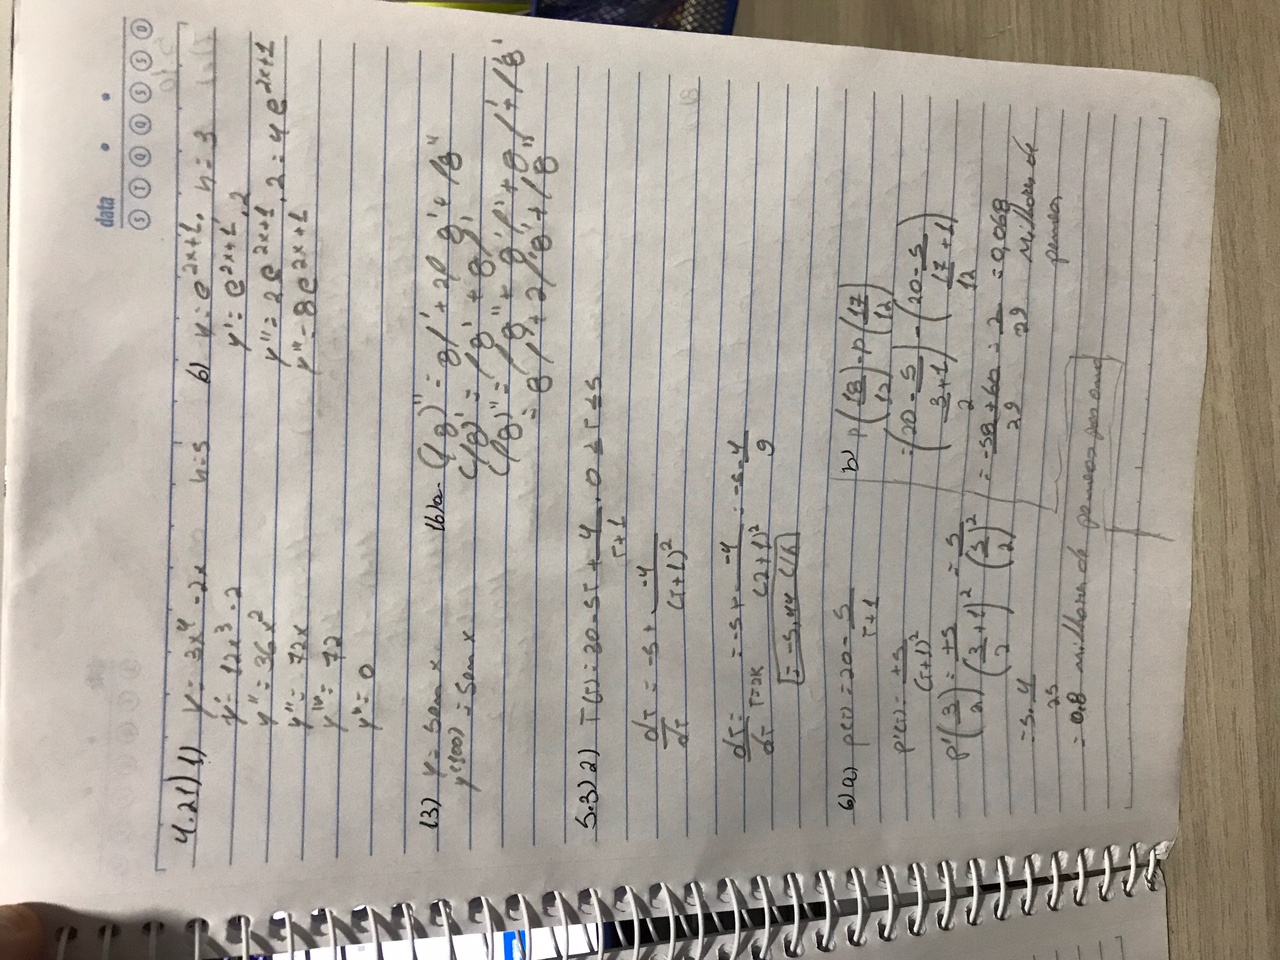 data
S T Q Q S S D
4.21) 1) y = 3x⁴ - 2x n=5
y' = 12x³ - 2
y'' = 36x²
y''' = 72x
yⁱᵛ = 72
yᵛ = 0
6) y = e^(2x+1), n = 3
y' = e^(2x+1) . 2
y'' = 2e^(2x+1) . 2 = 4e^(2x+1)
y''' = 8e^(2x+1)
13) y = Sen x
y^(100) = Sen x
16) a. (fg)'' = gf' + 2f g' + fg''
(fg)' = fg' + gf'
(fg)'' = fg'' + g'f' + gf' + f'g'
= gf' + 2f'g' + fg''
5.3) 2) T(t) = 30 - 5t + 4/(t+1), 0 ≤ t ≤ 5
dT/dt = -5 + -4/(t+1)²
dT/dt t=2h = -5 + -4/(2+1)² = -5 - 4/9
= -5,44 C/h
6) a) p(t) = 20 - 5/(t+1)
p'(t) = +5/(t+1)²
p'(3/2) = +5/(3/2 + 1)² = 5/(5/2)²
= 5 . 4/25
= 0,8 milhores de pessoas por ano
b) p(18/12) - p(17/12)
= (20 - 5/(3/2 + 1)) - (20 - 5/(17/12 + 1))
= (-58 + 60)/29 = 2/29 = 0,068
Milhores de
pessoas